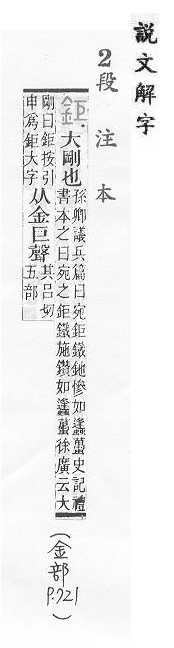 説文解字
2段注本
鉅.大剛也
孫卿議兵篇曰宛鉅鐵釶慘如蠭蠆史記禮
書本之曰宛之鉅鐵施鑽如蠭蠆徐廣云大
剛曰鉅按引
申爲鉅大字
从金巨聲
其呂切
五部
(金部
P.721)